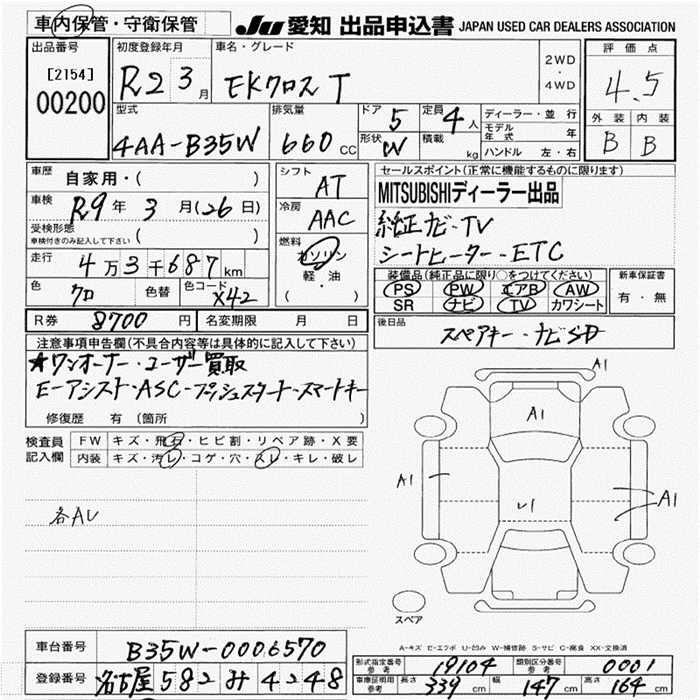 車内保管・守衛保管
JU 愛知 出品申込書 JAPAN USED CAR DEALERS ASSOCIATION
出品番号
[2154]
00200
初度登録年月
R2 3月
車名・グレード
EKクロス T
2WD
・
4WD
評価点
4.5
外装 内装
B B
型式
4AA-B35W
排気量
660 CC
ドア 5
形状 W
定員 4人
積載 kg
ディーラー・並行
モデル年式 年
ハンドル 左・右
車歴 自家用・( )
車検 R9年 3月(26日)
受検形態
車検付きのみ記入して下さい ( )
走行 4万3千687km
色 クロ 色替 色コード X42
シフト AT
冷房 AAC
燃料 ガソリン
軽・油
( )
セールスポイント(正常に機能するものに限ります)
MITSUBISHIディーラー出品
純正ナビ-TV
シートヒーター-ETC
装備品(純正品に限り○をつけてください)
PS PW エアB AW
SR ナビ TV カワシート
新車保証書
有・無
R券 8700円 名変期限 月 日
後日品
スペアキー・ナビSD
注意事項申告欄(不具合内容等は具体的に記入して下さい)
★ワンオーナー・ユーザー買取
E-アシスト-ASC-プッシュスタート-スマートキー
修復歴 有(箇所 )
検査員記入欄
FW キズ・飛石・ヒビ割・リペア跡・X要
内装 キズ・汚レ・コゲ・穴・スレ・キレ・破レ
各AU
A1
A1
A1
A1
U1
スペア
A-キズ E-エクボ U-凹み W-補修跡 S-サビ C-腐食 XX-交換済
車台番号 B35W-0006570
登録番号 名古屋 582 み 4248
形式指定番号 参考 19104 類別区分番号 参考 0001
車庫証明用 参考 長さ 339cm 幅 147cm 高さ 164cm